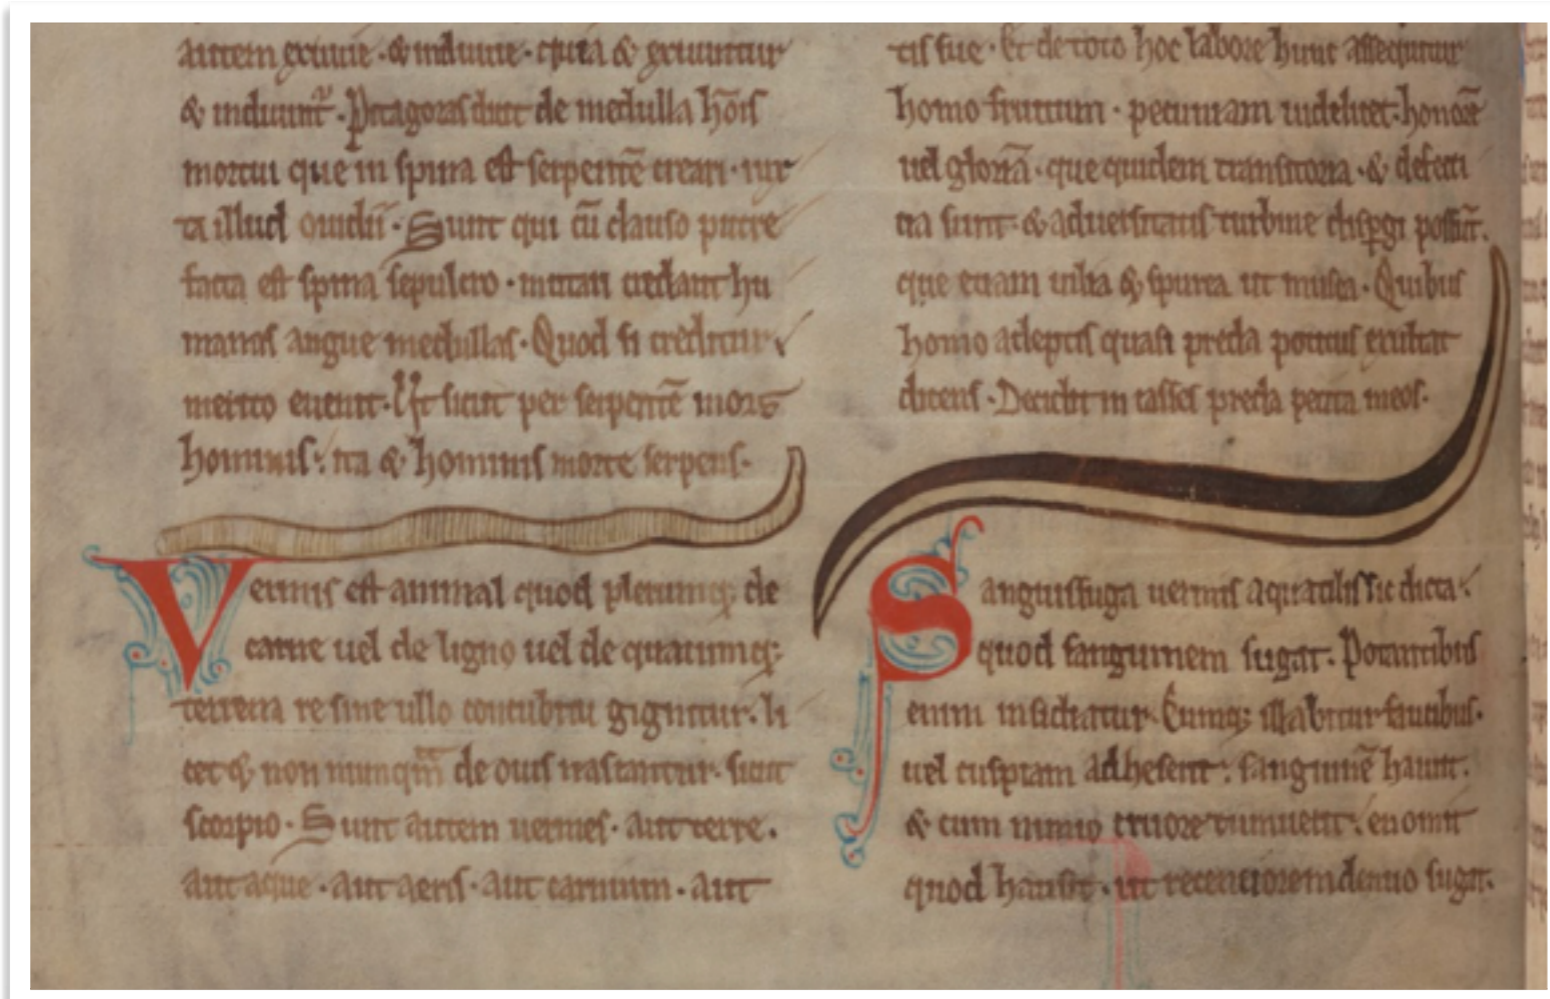 autem exuuie · & induuie · quia & exuuntur
& induunt᷑ · Pitagoras dicit de medulla hōis
mortui que in spina est serpentē creari · iux
ta illud ouidii · Sunt qui cū clauso putre
facta est spina sepulcro · mutari credant hu
manas angue medullas · Quod si creditur
merito euenit · Ut sicut per serpentē mors
hominis : ita & hominis morte serpens ·
Vermis est animal quod plerumq; de
carne uel de ligno uel de quacumq;
terrena re sine ullo concubitu gignitur · li
cet q; non nunqᷓm de ouis nascantur · sicut
scorpio · Sunt autem uermes · aut terre ·
aut aque · aut aeris · aut carnium · aut
tis sue · Et de toto hoc labore hunc assequitur
homo fructum · pecuniam uidelicet · honorē
uel gloriā · que quidem transitoria · & defecti
ua sunt · & aduersitatis turbine dispgi possūt ·
que etiam uilia & spurca ut musca · Quibus
homo adeptis quasi preda potitus exultat
dicens · Decidit in casses preda petita meos ·
Sanguissuga uermis aquatilis sic dicta
quod sanguinem sugat · Potantibus
enim insidiatur · Cumq; illabitur faucibus ·
uel cuspiam adheserit : sanguinē haurit ·
& cum nimio cruore tumuerit : euomit
quod hausit · ut recenciorem denuo sugat ·